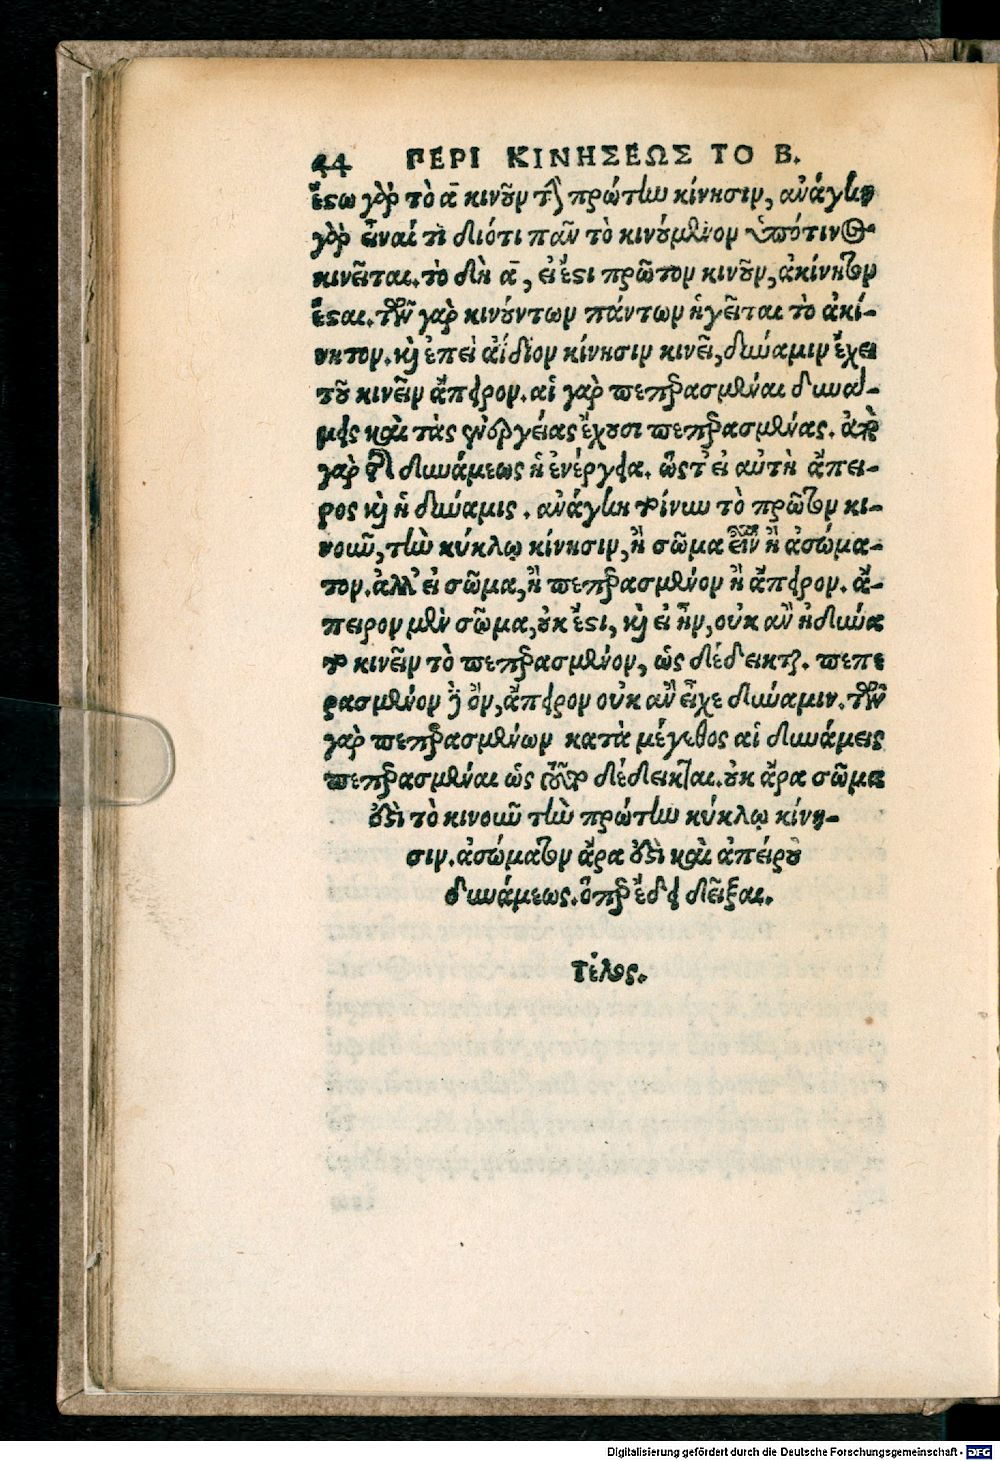 44 ΠΕΡΙ ΚΙΝΗΣΕΩΣ ΤΟ Β.
ἔστω γὰρ τὸ ᾱ κινοῦν τὴν πρώτην κίνησιν, ἀνάγκη
γὰρ εἶναί τι διότι πᾶν τὸ κινούμενον ὑπό τινος
κινεῖται. τὸ δὴ ᾱ, εἰ ἔστι πρῶτον κινοῦν, ἀκίνητον
ἔσται. τῶν γὰρ κινούντων πάντων ἡγεῖται τὸ ἀκί-
νητον. καὶ ἐπεὶ ἀΐδιον κίνησιν κινεῖ, δύναμιν ἔχει
τοῦ κινεῖν ἄπειρον. αἱ γὰρ πεπερασμέναι δυνά-
μεις καὶ τὰς ἐνεργείας ἔχουσι πεπερασμένας. ἀπὸ
γὰρ τῆς δυνάμεως ἡ ἐνέργεια. ὥστ' εἰ αὐτὴ ἄπει-
ρος καὶ ἡ δύναμις. ἀνάγκη τοίνυν τὸ πρῶτον κι-
νοῦν, τὴν κύκλῳ κίνησιν, ἢ σῶμα εἶναι ἢ ἀσώμα-
τον. ἀλλ' εἰ σῶμα, ἢ πεπερασμένον ἢ ἄπειρον. ἄ-
πειρον μὲν σῶμα, οὐκ ἔστι, καὶ εἰ ἦν, οὐκ ἂν ἠδύνα
το κινεῖν τὸ πεπερασμένον, ὡς δέδεικται. πεπε
ρασμένον δὲ ὂν, ἄπειρον οὐκ ἂν εἶχε δύναμιν. τῶν
γὰρ πεπερασμένων κατὰ μέγεθος αἱ δυνάμεις
πεπερασμέναι ὡς τοῦτο δέδεικται. οὐκ ἄρα σῶμα
ἐστὶ τὸ κινοῦν τὴν πρώτην κύκλῳ κίνη-
σιν. ἀσώματον ἄρα ἐστὶ καὶ ἀπείρου
δυνάμεως. ὅπερ ἔδει δεῖξαι.
τέλος.
Digitalisierung gefördert durch die Deutsche Forschungsgemeinschaft - DFG